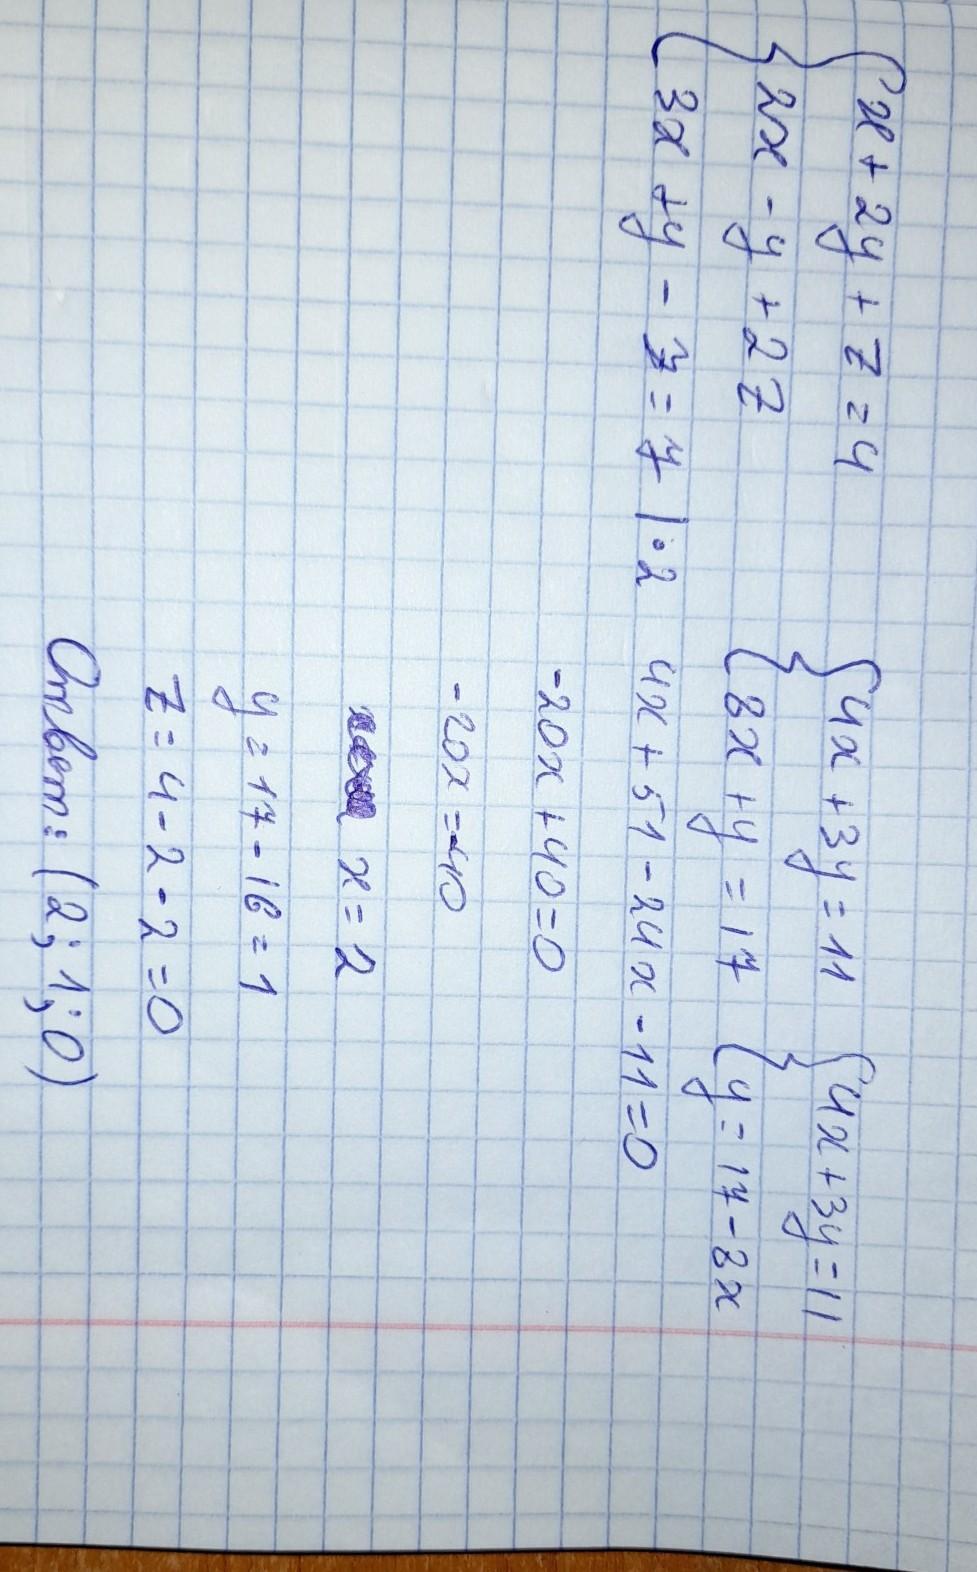 { x + 2y + z = 4
{ 2x - y + 2z
{ 3x + y - z = 7 | · 2
{ 4x + 3y = 11
{ 8x + y = 17
{ 4x + 3y = 11
{ y = 17 - 8x
4x + 51 - 24x - 11 = 0
-20x + 40 = 0
-20x = -40
x = 2
y = 17 - 16 = 1
z = 4 - 2 - 2 = 0
Ответ: (2; 1; 0)